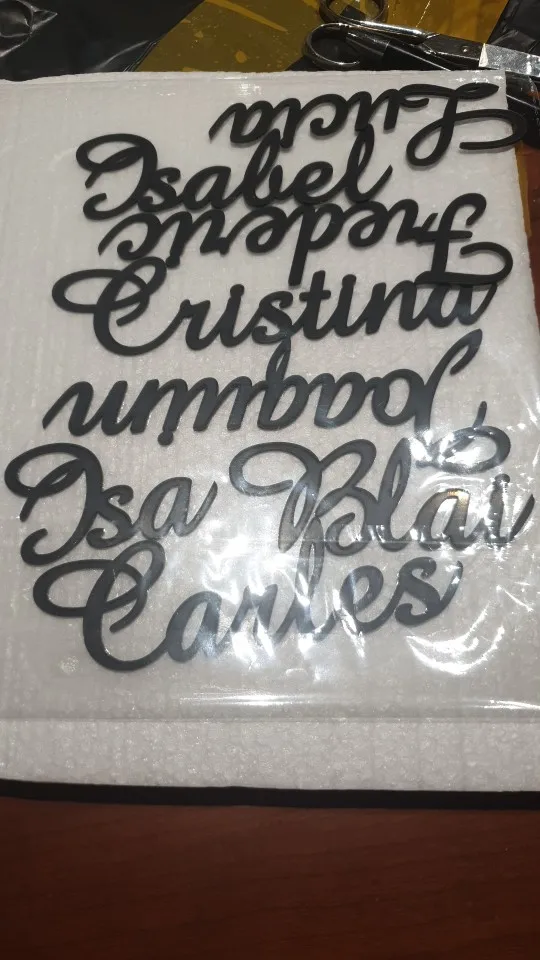 Lucia
Isabel
Frederic
Cristina
Joaquim
Isa Blai
Carles